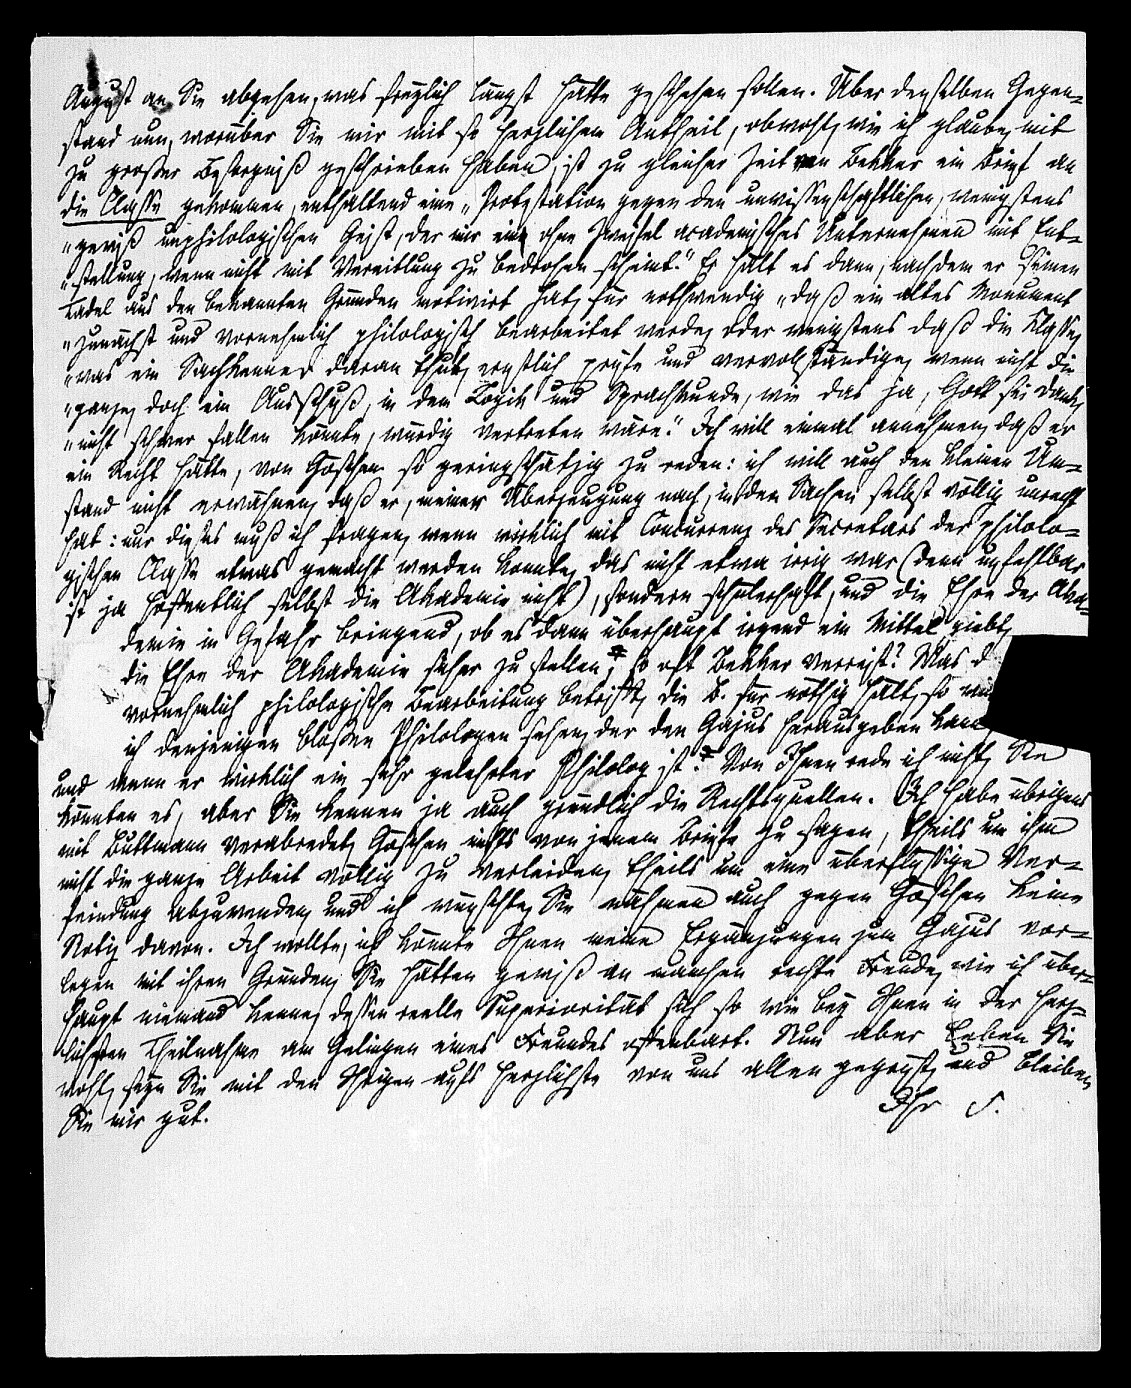 August an Sie abgehen, was freylich längst hätte geschehen sollen. Über denselben Gegen-
stand nun, worüber Sie mir mit so herzlichem Antheil, obwohl, wie ich glaube, mit
zu großer Besorgniß geschrieben haben, ist zu gleicher Zeit von Bekker ein Brief an
die Classe gekommen, enthaltend eine „Protestation gegen den unwissenschaftlichen, wenigstens
„gewiß unphilologischen Geist, der mir ein ohne Zweifel academisches Unternehmen mit Ent-
„stellung, wenn nicht mit Vereitlung zu bedrohen scheint." Er hält es dann, nachdem er seinen
Tadel aus den bekannten Gründen motivirt hat, für nothwendig „daß ein altes Monument
„zunächst und vornehmlich philologisch bearbeitet werde, oder wenigstens daß die Klasse,
„was ein Sachkenner daran thut, ernstlich prüfe und vervollständige, wenn nicht die
„ganze, doch ein Ausschuß, in dem Logik und Sprachkunde, wie das ja, Gott sei Dank,
„nicht schwer fallen könnte, würdig vertreten wäre." Ich will einmal annehmen, daß er
ein Recht hätte, von Göschen so geringschätzig zu reden: ich will auch den kleinen Um-
stand nicht erwähnen, daß er, meiner Überzeugung nach, in den Sachen selbst völlig unrecht
hat: nur dieses muß ich fragen, wenn wirklich mit Concurrenz des Secretars der philolo-
gischen Classe etwas gemacht werden konnte, das nicht etwa irrig war (denn unfehlbar
ist ja hoffentlich selbst die Akademie nicht), sondern schülerhaft, und die Ehre der Aka-
demie in Gefahr bringend, ob es dann überhaupt irgend ein Mittel giebt,
die Ehre der Akademie sicher zu stellen, so oft Bekker verreist? Was d
vornehmlich philologische Bearbeitung betrifft, die B. für nöthig hält, so
ich denjenigen bloßen Philologen sehen, der den Gajus herausgeben kann,
und wenn er wirklich ein sehr gelehrter Philolog ist. Von Ihnen rede ich nicht, Sie
könnten es, aber Sie kennen ja auch gründlich die Rechtsquellen. Ich habe übrigens
mit Buttmann verabredet, Göschen nichts von jenem Briefe zu sagen, theils um ihm
nicht die ganze Arbeit völlig zu verleiden, theils um eine überflüssige Ver-
feindung abzuwenden, und ich wünschte, Sie nähmen auch gegen Göschen keine
Notiz davon. Ich wollte, ich könnte Ihnen meine Ergänzungen zum Gajus vor-
legen mit ihren Gründen, Sie hätten gewiß an manchen rechte Freude, wie ich über-
haupt niemand kenne, dessen reelle Superiorität sich so wie bey Ihnen in der herz-
lichsten Theilnahme am Gelingen eines Freundes offenbart. Nun aber leben Sie
wohl, seyn Sie mit den Ihrigen aufs herzlichste von uns allen gegrüßt, und bleiben
Sie mir gut.
Ihr S.